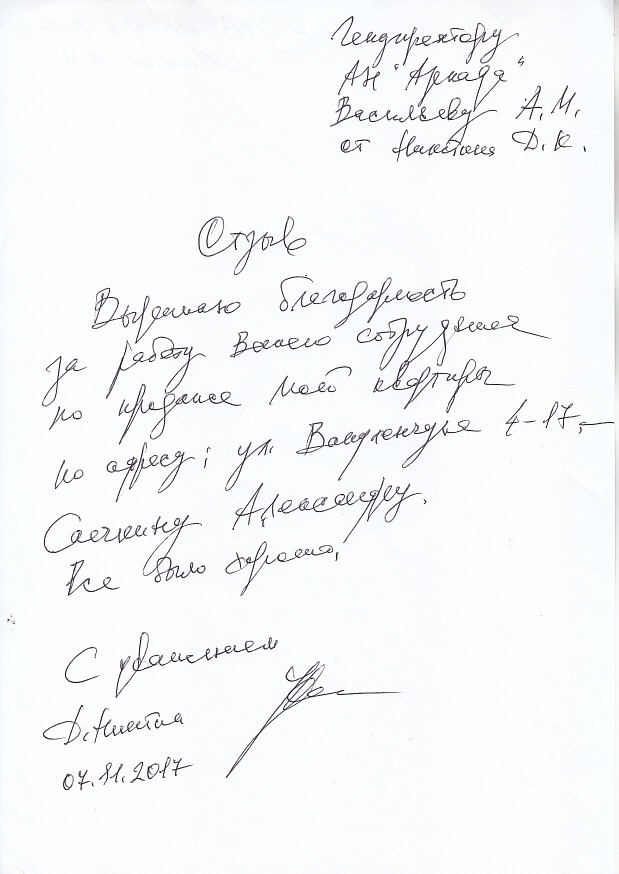 Гендиректору
АН "Аркада"
Васильеву А.М.
от Никитина Д.К.
Отзыв
Выражаю благодарность
за работу Вашего сотрудника
по продаже моей квартиры
по адресу: ул. 4-17,-
Саечкину Александру.
Все было хорошо,
С уважением
Д. Никитин
07.11.2017